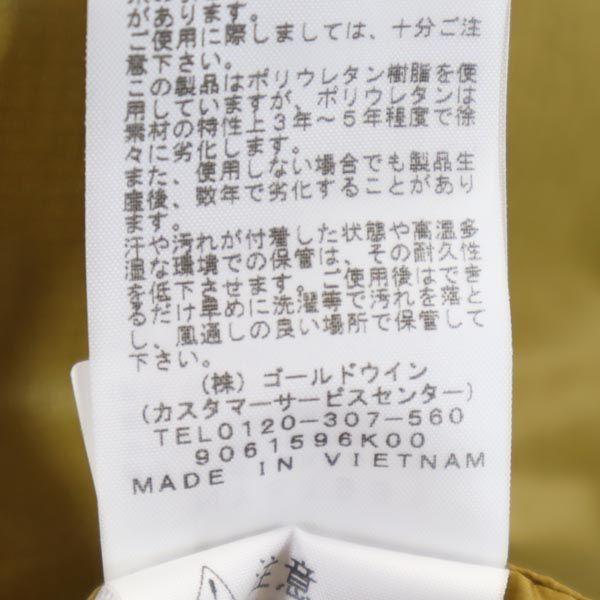 あります。
あお使用に際しましては、十分ご注
意下さい。
この製品はポリウレタン樹脂を使
用していますが、ポリウレタンは
素材の特性上3年～5年程度で徐
々に劣化します。
また、使用しない場合でも製品生
産後、数年で劣化することがあり
ます。
汗や汚れが付着した状態や高温多
湿な環境での保管は、その耐久性
を低下させます。ご使用後はでき
るだけ早めに洗濯等で汚れを落と
し、風通しの良い場所で保管して
下さい。
(株)ゴールドウイン
(カスタマーサービスセンター)
TEL0120-307-560
9061596K00
MADE IN VIETNAM
注意